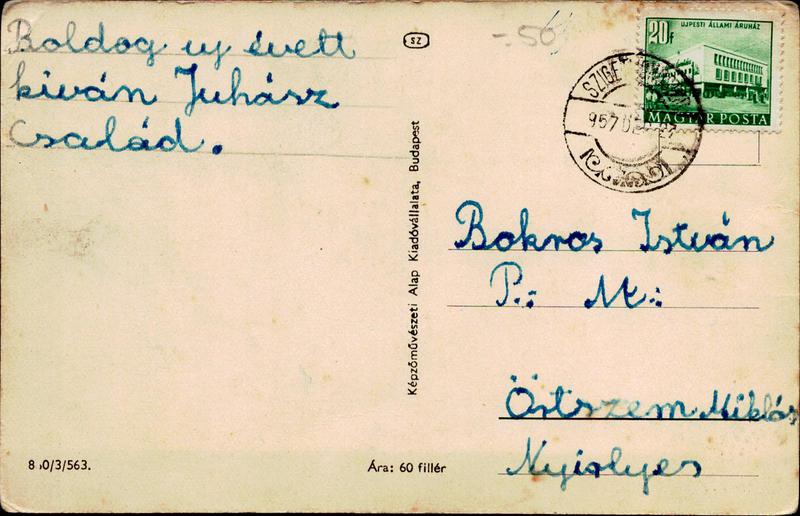 Boldog uj évett
kiván Juhász
Család.
SZ
-50
20f
UJPESTI ÁLLAMI ÁRUHÁZ
MAGYAR POSTA
957
Képzőművészeti Alap Kiadóvállalata, Budapest
Bokros István
P.: M:
Őrtszem Miklós
Nyiolyes
/3/563.
Ára: 60 fillér